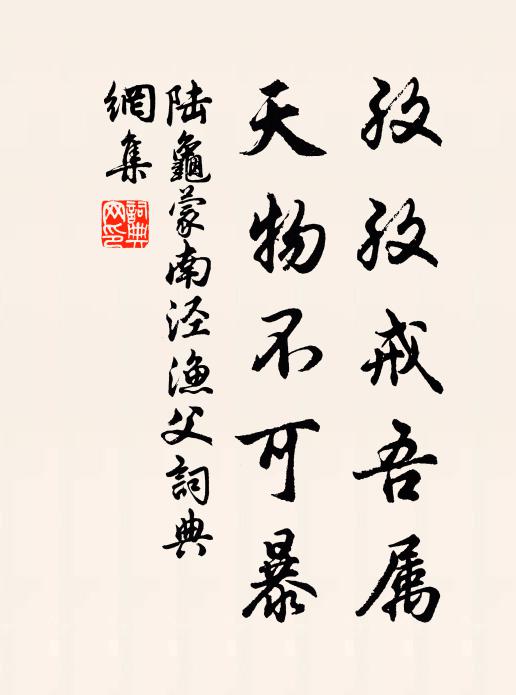 孜孜戒吾属
天物不可暴
陆龜蒙南泾漁父詞典
網集
詞典网印